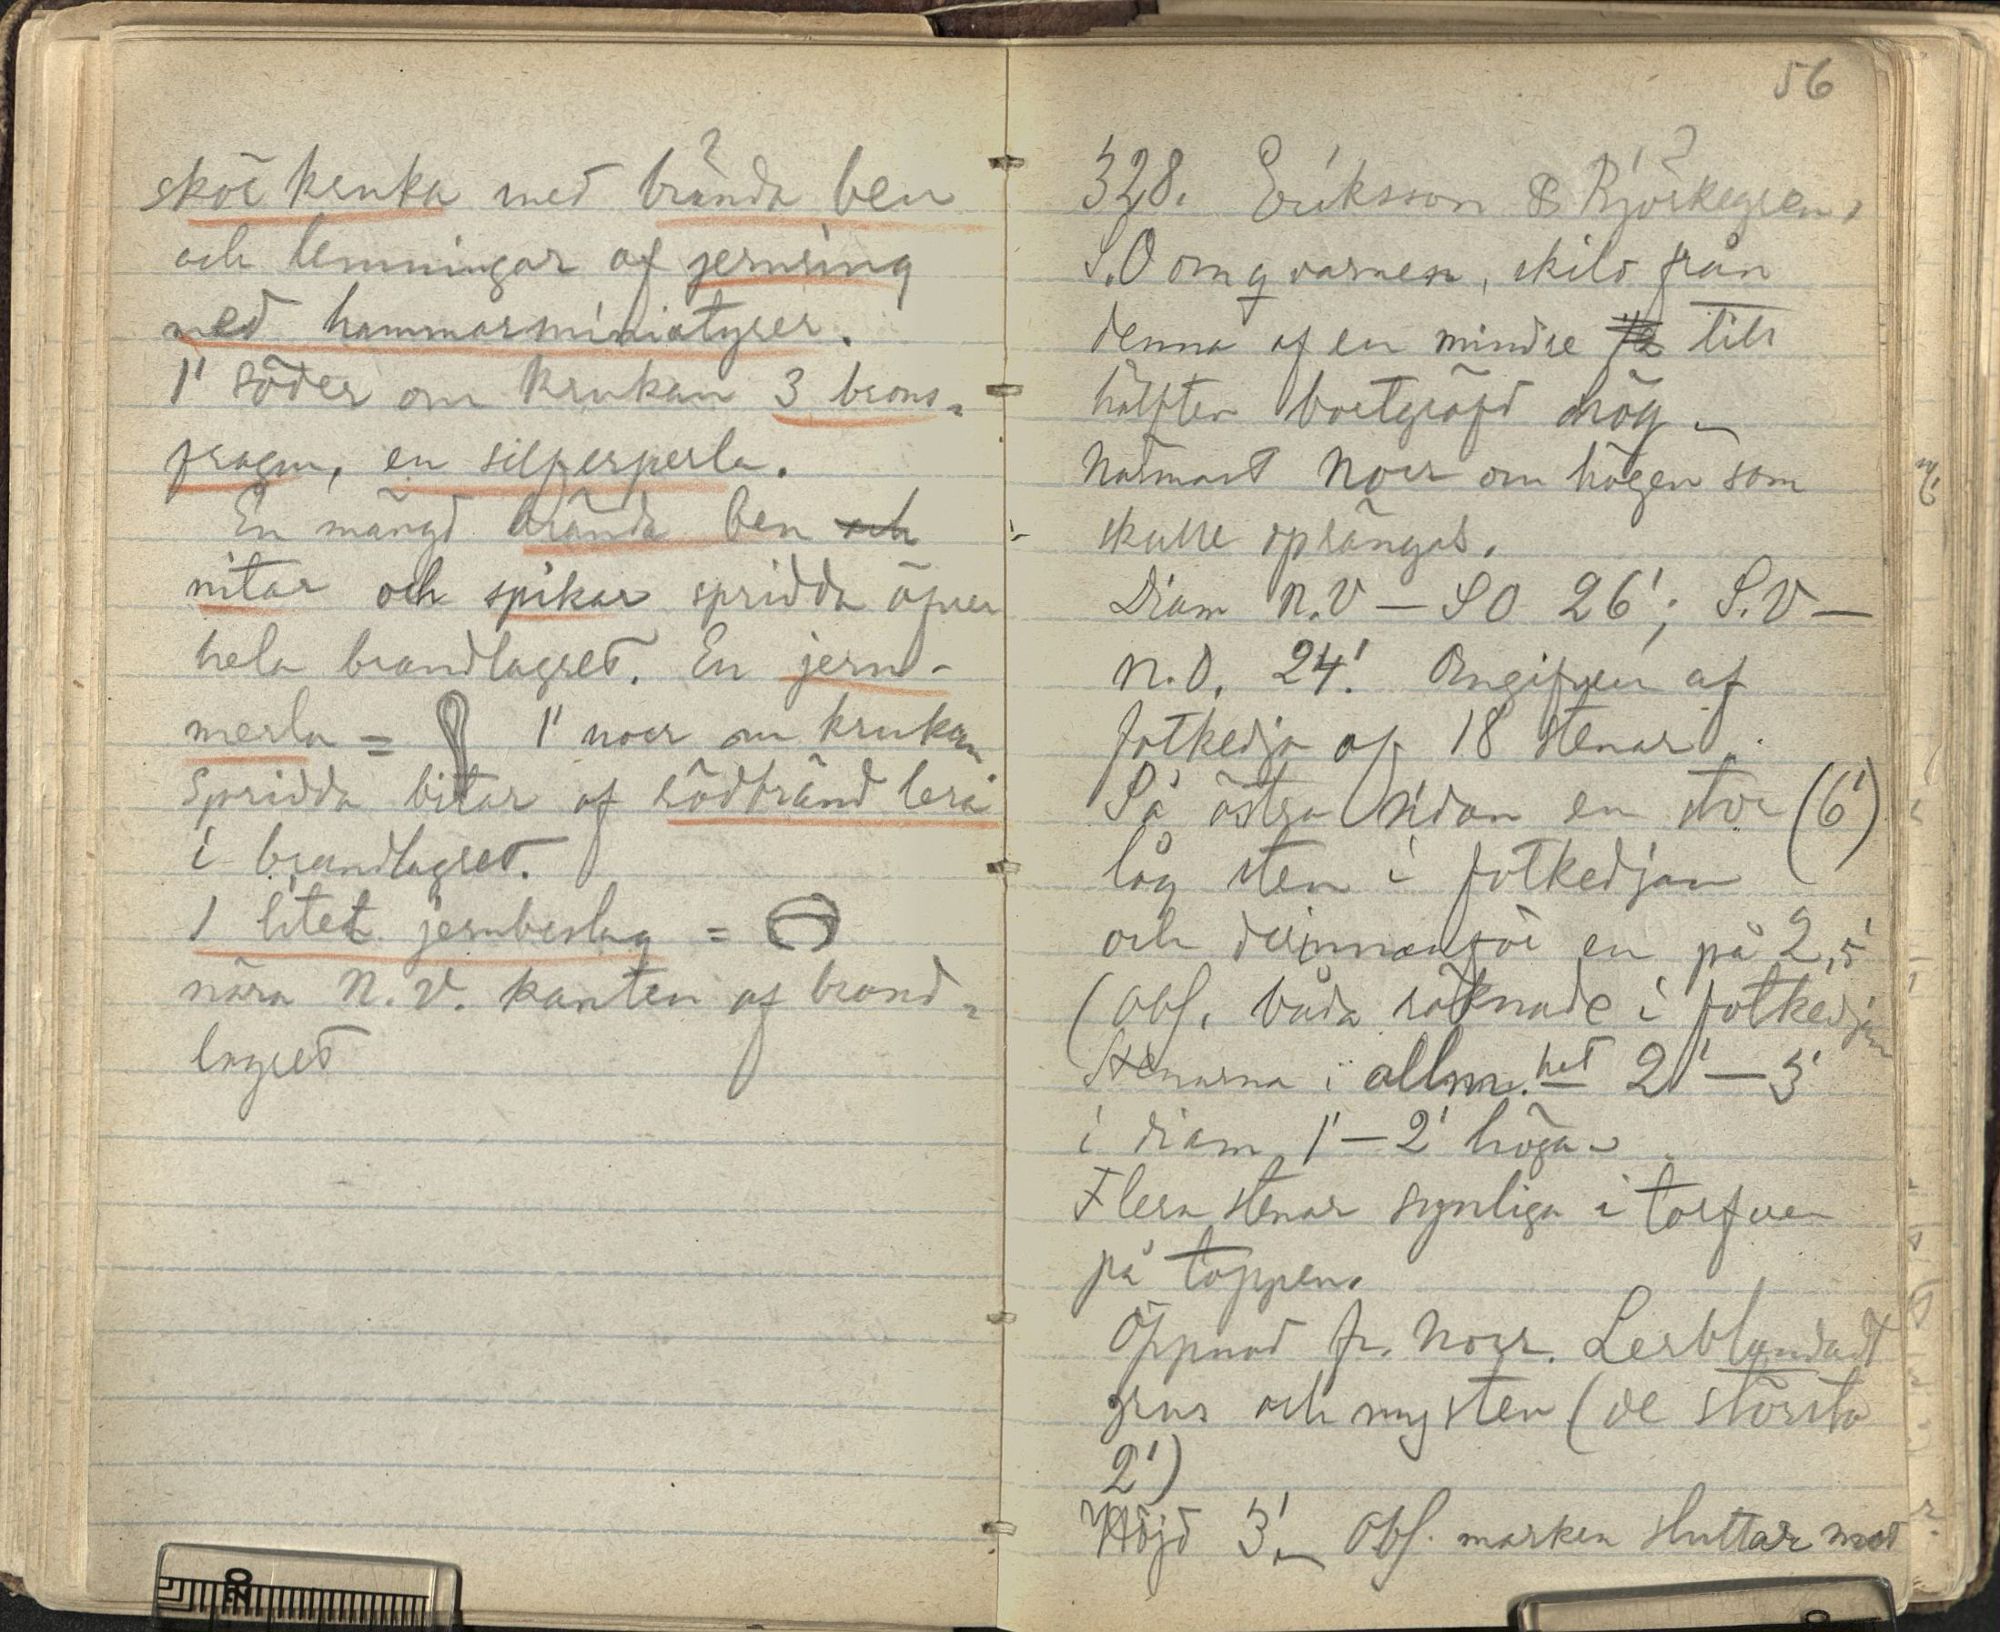 skör kruka med brända ben
och lemningar af jernring
med hammarminiatyrer.
1' söder om krukan 3 brons-
fragm, en silfverperla.
En mängd brända ben och
nitar och spikar spridda öfver
hela brandlagret. En jern-
merla = 1' norr om krukan
Spridda bitar af rödbränd lera
i brandlagret.
1 litet jernbeslag =
nära N.V. kanten af brand-
lagret
56
328. Eriksson & Björkegren.
S.O om qvarnen, skild från
denna af en mindre till
hälften bortgräfd hög -
Närmast Norr om högen som
skulle sprängas.
Diam N.V - SO 26'; S.V -
N.O. 24'. Omgifven af
fotkedja af 18 stenar.
På östra sidan en stor (6')
låg sten i fotkedjan
och derinnanför en på 2,5'
(obs. båda räknade i fotkedjan
Stenarna i allm.het 2' - 3'
i diam 1' - 2' höga -
Flera stenar synliga i torfven
på toppen.
Öppnad fr. Norr. Lerblandadt
grus och mysten (de största
2')
Höjd 3'. Obs. marken sluttar mot